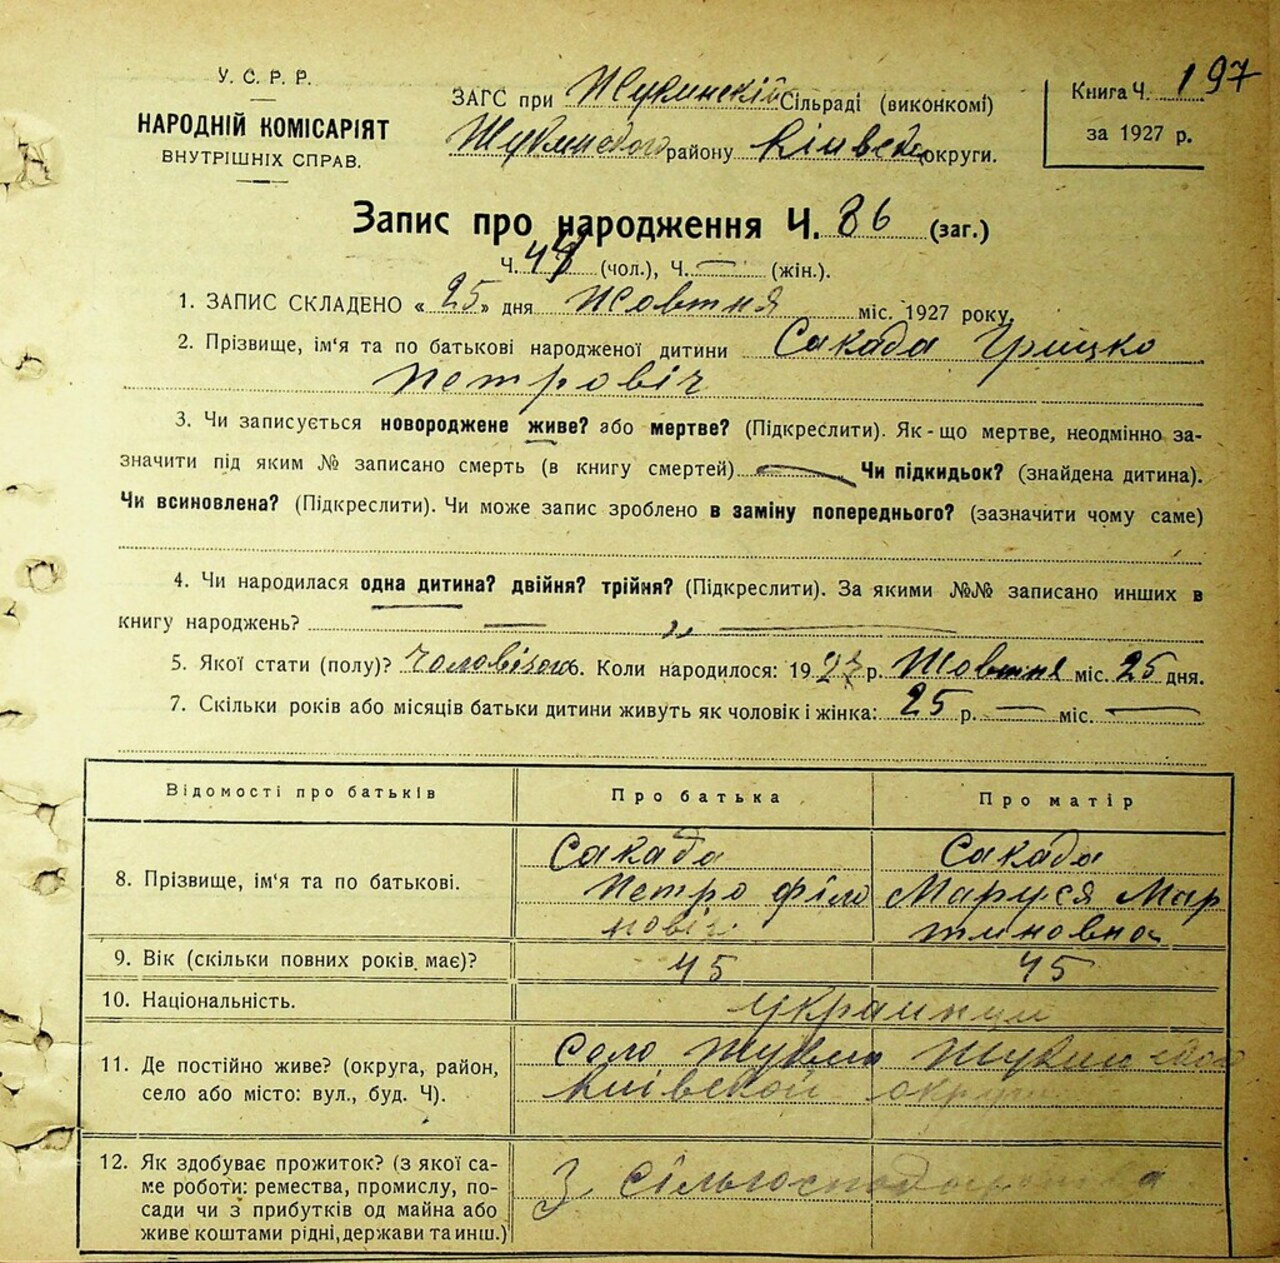 У. С. Р. Р.
НАРОДНІЙ КОМІСАРІЯТ
ВНУТРІШНІХ СПРАВ.
ЗАГС при Жукинскій Сільраді (виконкомі)
Жукинского району Київськ округи.
Книга Ч. 197
за 1927 р.
Запис про народження Ч. 86 (заг.)
Ч. 48 (чол.), Ч. — (жін.).
1. ЗАПИС СКЛАДЕНО «25» дня Жовтня міс. 1927 року.
2. Прізвище, ім'я та по батькові народженої дитини Сакада Грицко
Петровіч
3. Чи записується новороджене живе? або мертве? (Підкреслити). Як-що мертве, неодмінно за-
значити під яким № записано смерть (в книгу смертей) — Чи підкидьок? (знайдена дитина).
Чи всиновлена? (Підкреслити). Чи може запис зроблено в заміну попереднього? (зазначити чому саме)
4. Чи народилася одна дитина? двійня? трійня? (Підкреслити). За якими №№ записано инших в
книгу народжень? — „ —
5. Якої стати (полу)? чоловічого 6. Коли народилося: 1927 р. Жовтня міс. 25 дня.
7. Скільки років або місяців батьки дитини живуть як чоловік і жінка: 25 р. — міс. —
Відомості про батьків
Про батька
Про матір
8. Прізвище, ім'я та по батькові.
Сакада
Петро Філо
новіч
Сакада
Маруся Мар
тиновна
9. Вік (скільки повних років має)?
45
45
10. Національність.
украинци
11. Де постійно живе? (округа, район,
село або місто: вул., буд. Ч).
Село Жукин Жукинского
Київской округи
12. Як здобуває прожиток? (з якої са-
ме роботи: ремества, промислу, по-
сади чи з прибутків од майна або
живе коштами рідні, держави та инш.)
З сільгосподарства